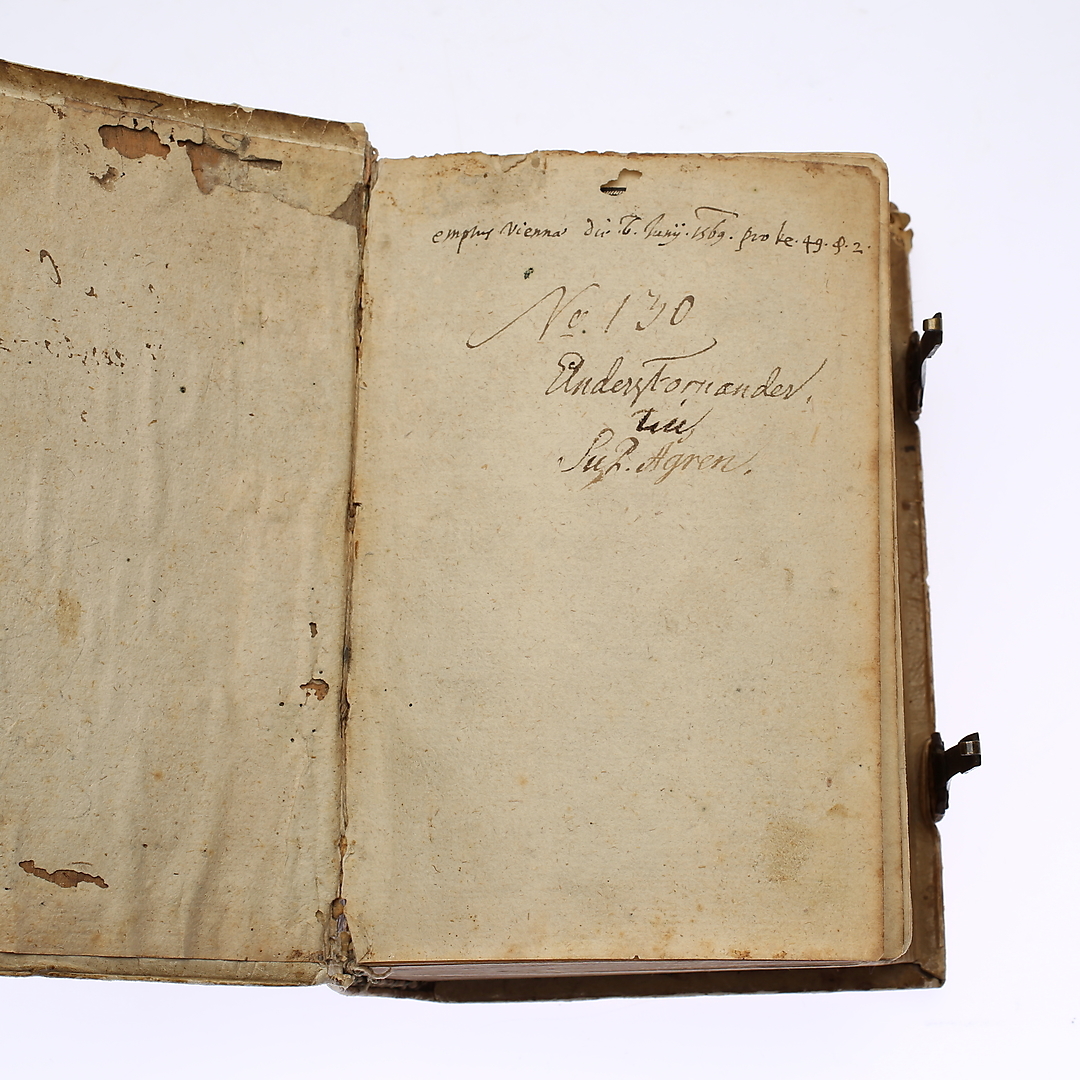 emptus Viennæ die 6. Junij. 1569. pro kr. 49. δ. 2.
No. 130
Anders Fornander.
Sup. Agren.